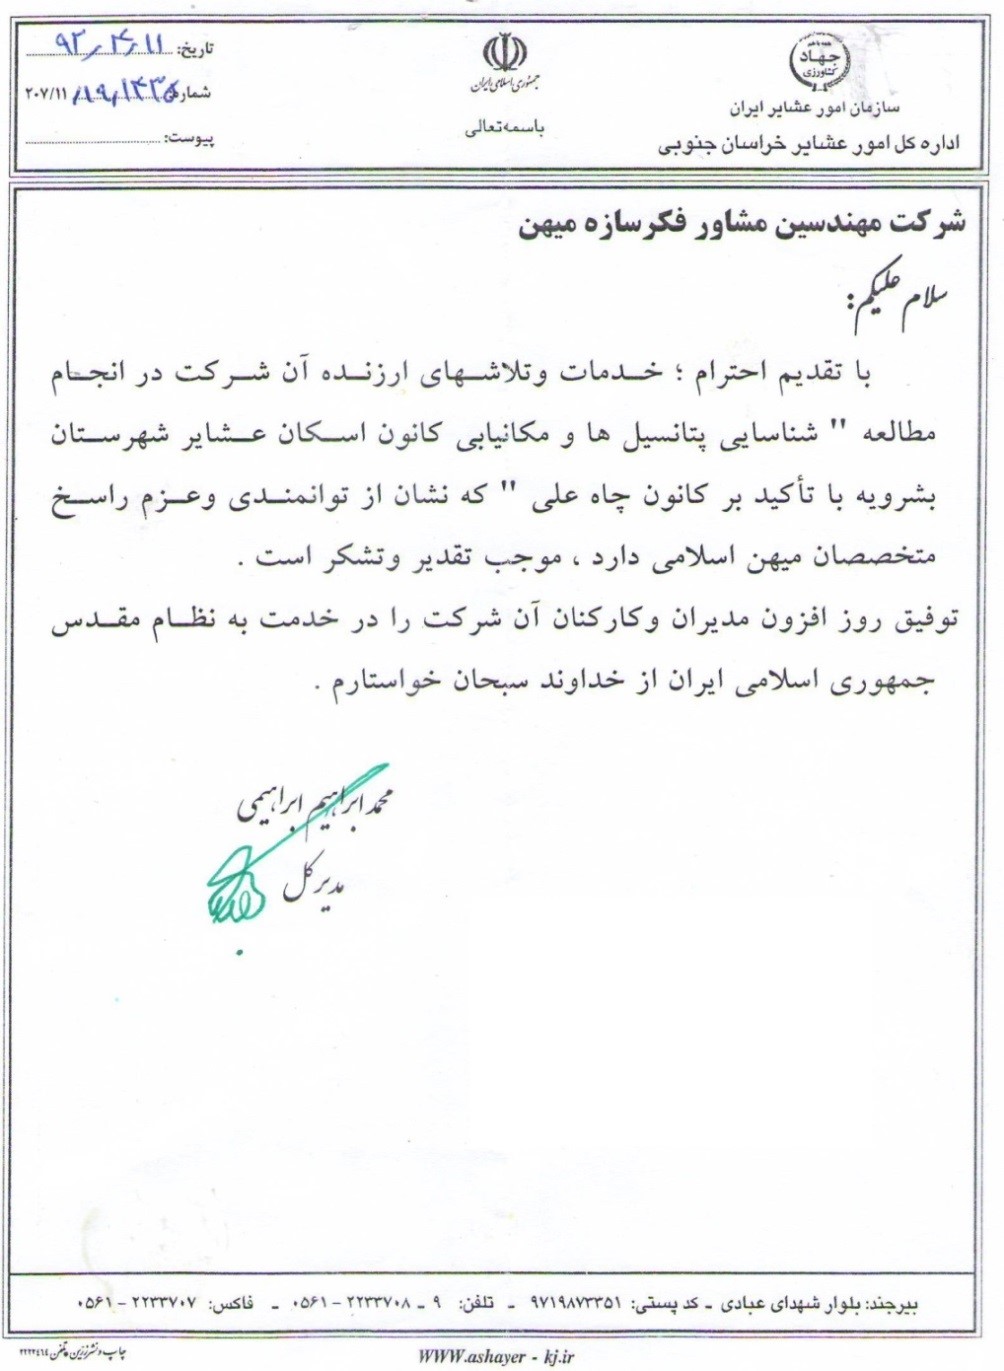 جهاد
کشاورزی
سازمان امور عشایر ایران
اداره کل امور عشایر خراسان جنوبی
جمهوری اسلامی ایران
باسمه‌تعالی
تاریخ: ۹۳٫۴٫۱۱
شماره: ۲۰۷/۱۱
پیوست:
شرکت مهندسین مشاور فکرسازه میهن
سلام علیکم:
با تقدیم احترام ؛ خدمات وتلاشهای ارزنده آن شرکت در انجام
مطالعه " شناسایی پتانسیل ها و مکانیابی کانون اسکان عشایر شهرستان
بشرویه با تأکید بر کانون چاه علی " که نشان از توانمندی وعزم راسخ
متخصصان میهن اسلامی دارد ، موجب تقدیر وتشکر است .
توفیق روز افزون مدیران وکارکنان آن شرکت را در خدمت به نظام مقدس
جمهوری اسلامی ایران از خداوند سبحان خواستارم .
محمد ابراهیم ابراهیمی
مدیر کل
بیرجند: بلوار شهدای عبادی ـ کد پستی: ۹۷۱۹۸۷۳۳۵۱ ـ تلفن: ۹ ـ ۲۲۳۳۷۰۸ – ۰۵۶۱ ـ فاکس: ۲۲۳۳۷۰۷ – ۰۵۶۱
WWW.ashayer - kj.ir
چاپ و نشر زرین تلفن: ۲۲۲۴۴۱۴